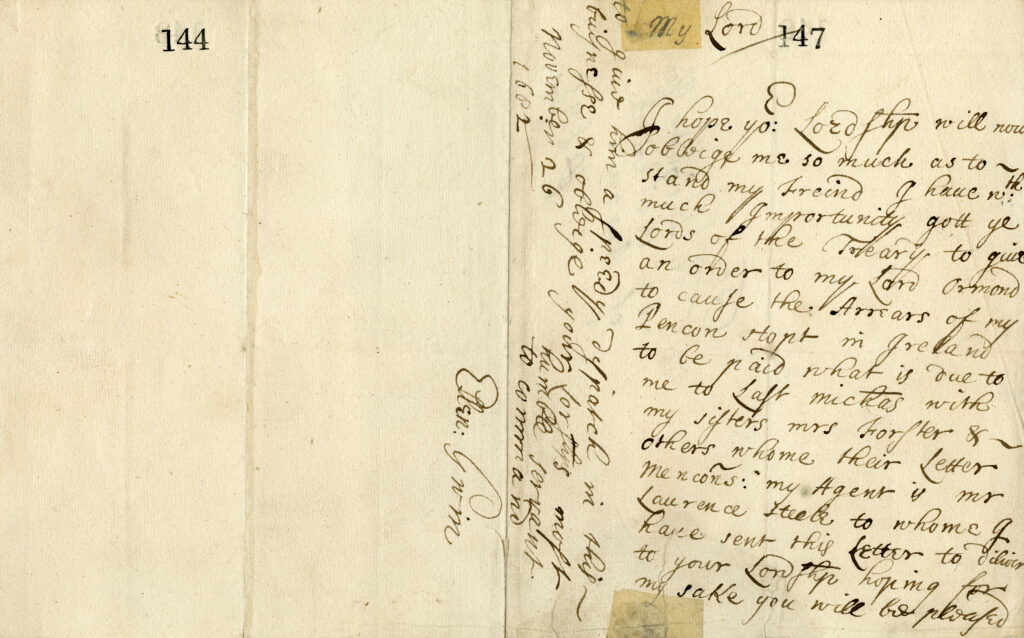 144
147
My Lord
I hope yo: Lordship will now
obleige me so much as to ~
stand my Freind I have wth:
much Importunity gott ye
Lords of the Treary to give
an order to my Lord Ormond
to cause the Arrears of my
Pencon stopt in Ireland
to be paid what is due to
me to Last michas with
my sisters mrs Forster & ~
others whome their Letter
mencons: my Agent is mr
Laurence Steele to whome I
have sent this Letter to diliver
to your Lordship hoping for
my sake you will be pleased
to give him a speedy dispatch in this ~
buisnesse & obleige your Lorships most
November 26 humble servant
1682 to command
Ellen: Gwin